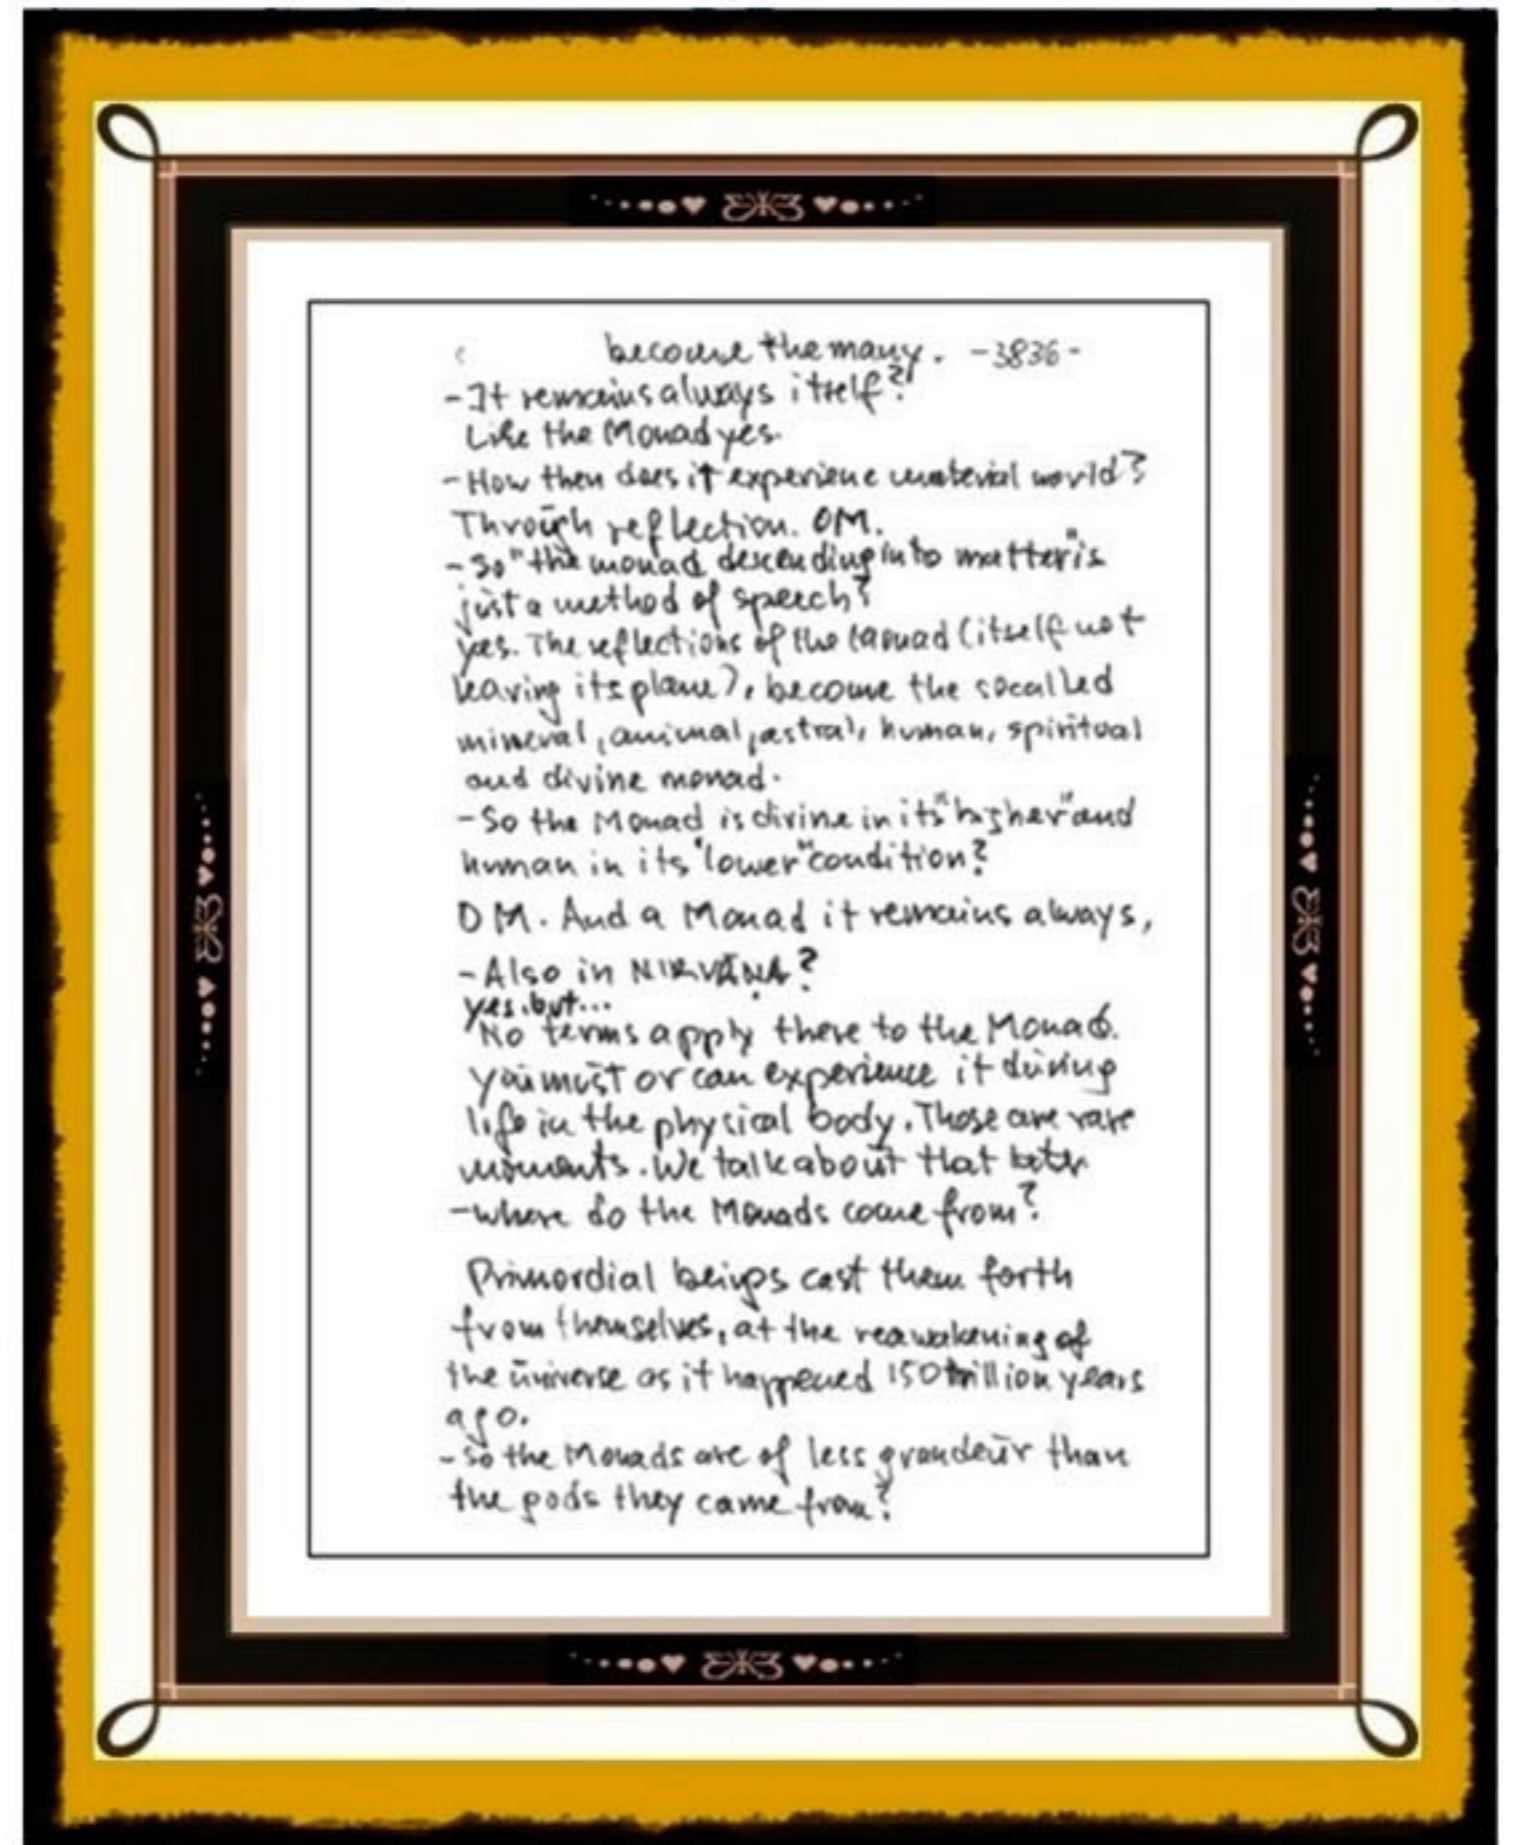 become the many. -3836-
-It remains always itself?
Like the Monad yes.
-How then does it experience material world?
Through reflection. OM.
-So "the monad descending into matter" is
just a method of speech?
yes. The reflections of the Monad (itself not
leaving its plane), become the socalled
mineral, animal, astral, human, spiritual
and divine monad.
-So the Monad is divine in its "higher" and
human in its "lower" condition?
OM. And a Monad it remains always,
-Also in NIRVĀNA?
yes. but...
No terms apply there to the Monad.
You must or can experience it during
life in the physical body. Those are rare
moments. We talk about that later
-where do the Monads come from?
Primordial beings cast them forth
from themselves, at the reawakening of
the universe as it happened 150 trillion years
ago.
-So the Monads are of less grandeur than
the gods they came from?